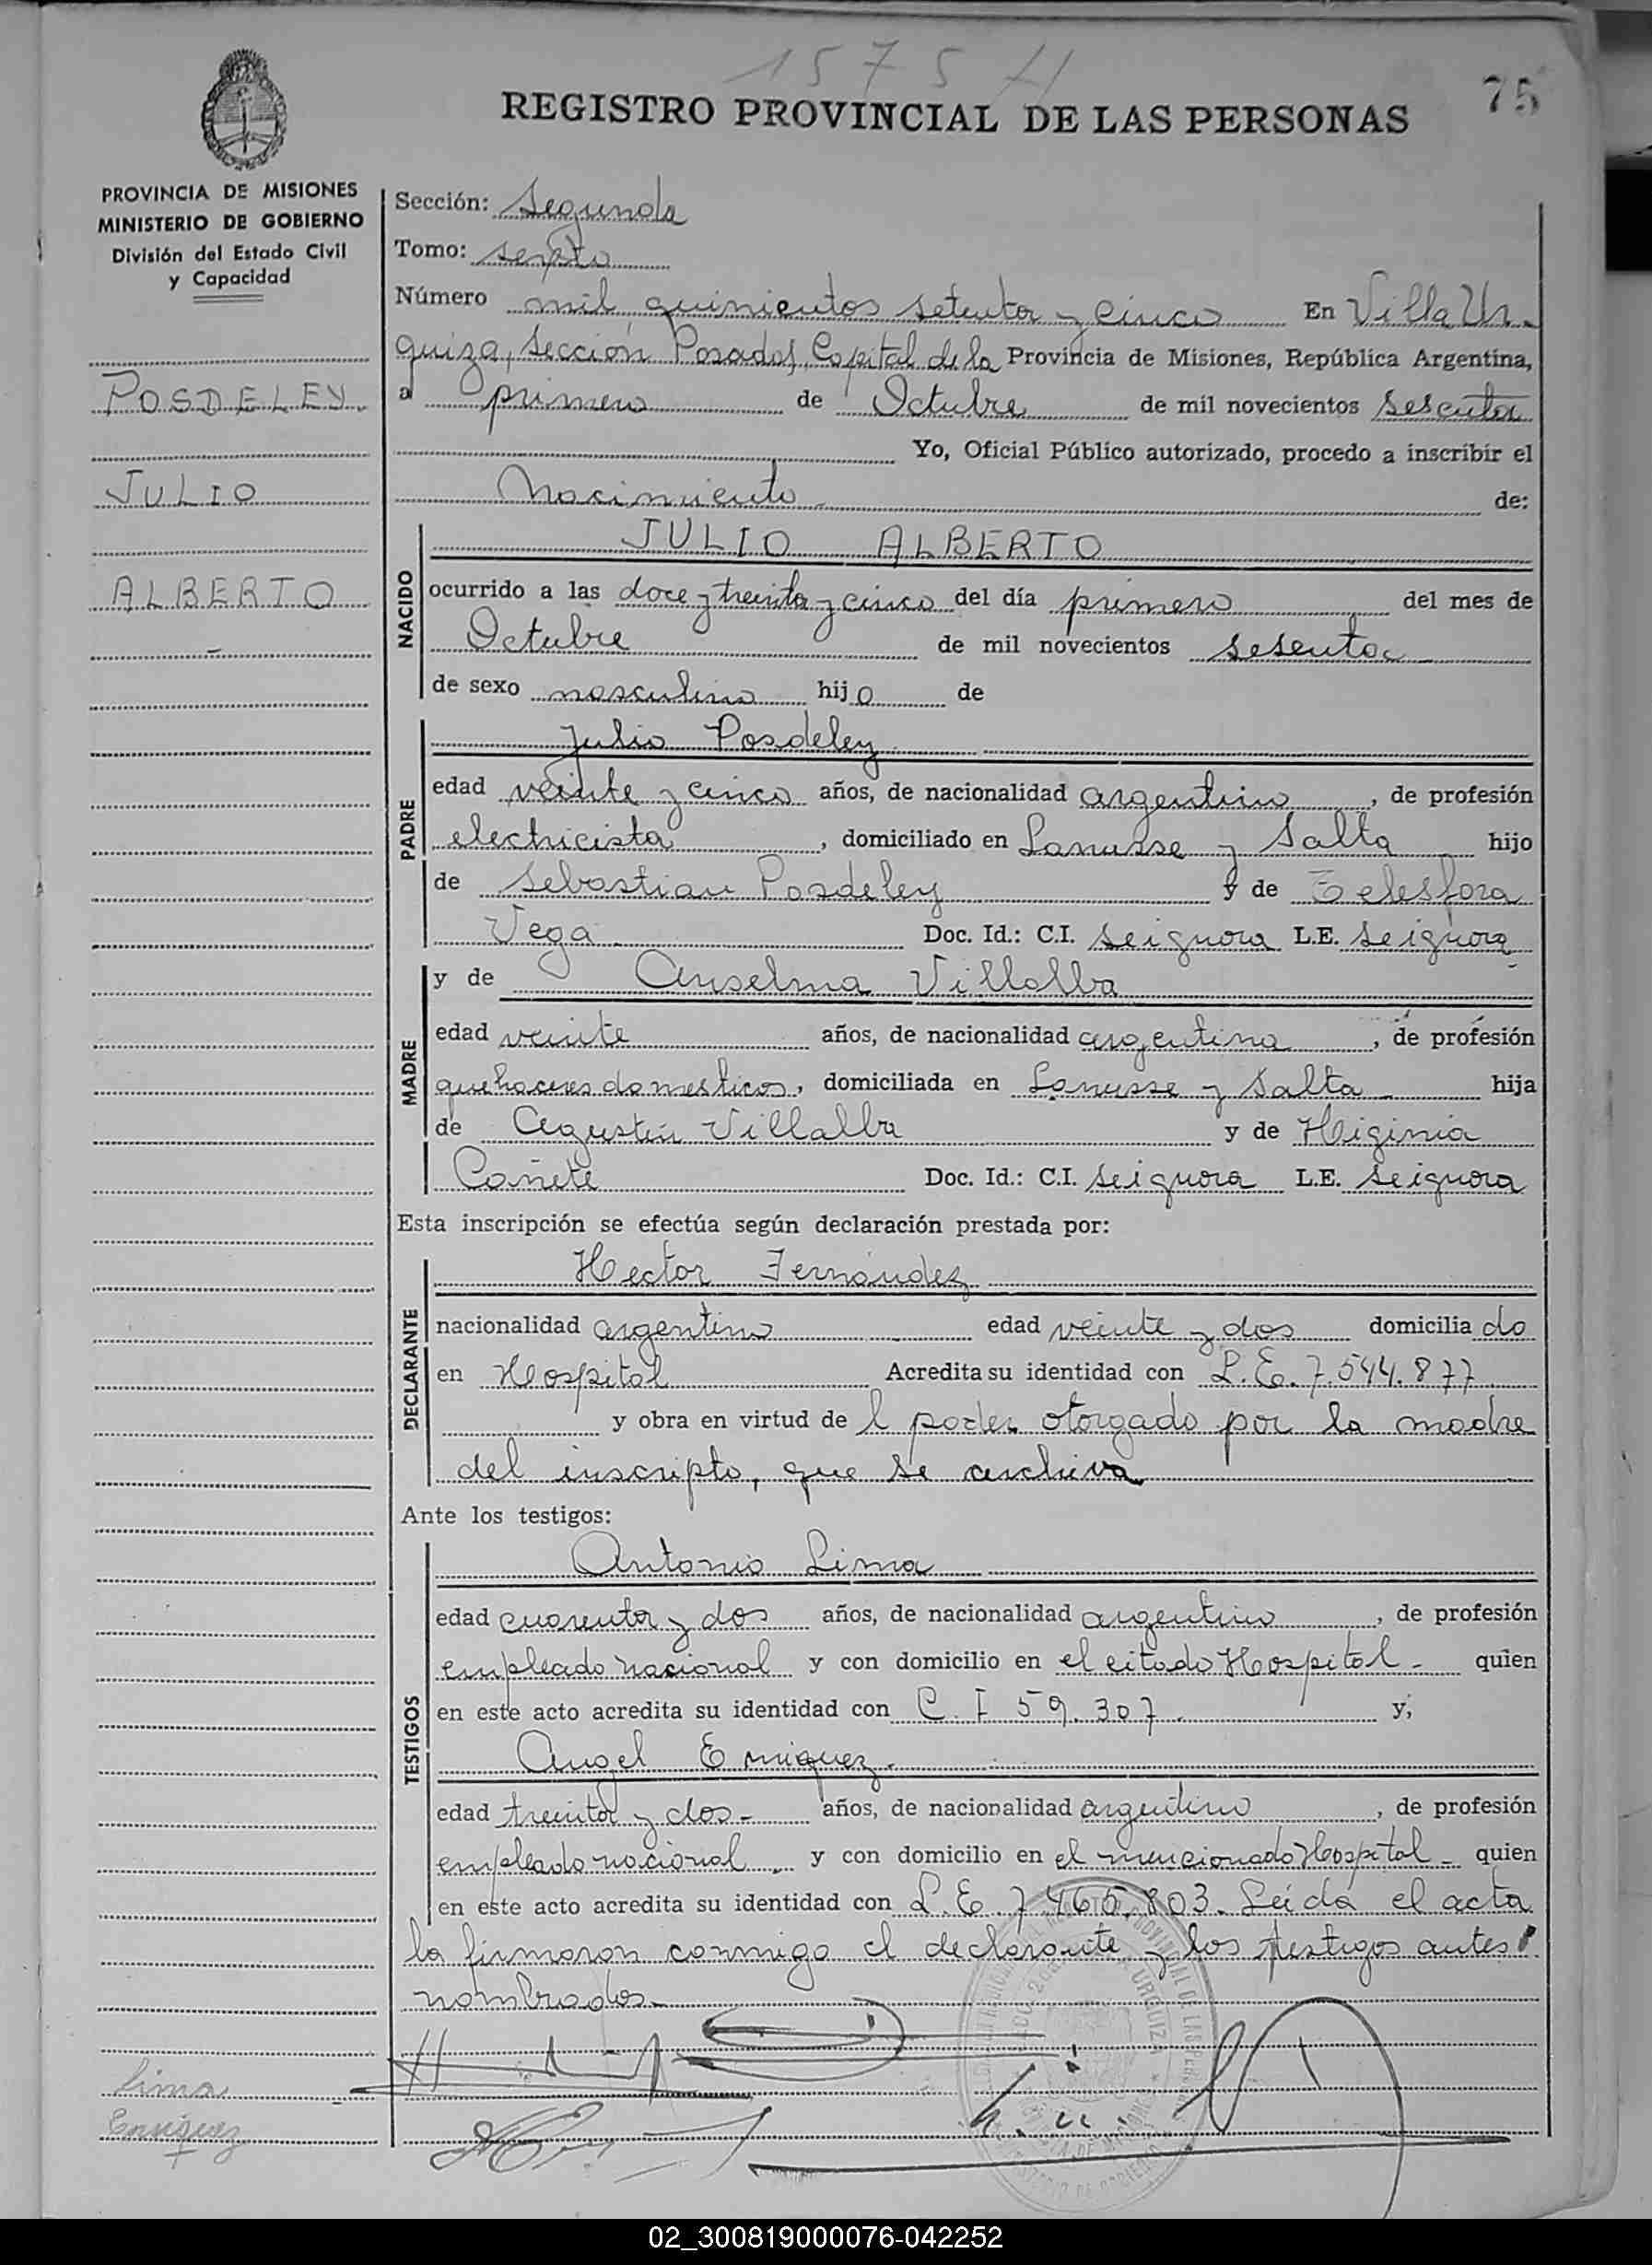 1575
75
REGISTRO PROVINCIAL DE LAS PERSONAS
PROVINCIA DE MISIONES
MINISTERIO DE GOBIERNO
División del Estado Civil
y Capacidad
POSDELEY.
JULIO
ALBERTO
Sección: Segunda
Tomo: sexto
Número mil quinientos setenta y cinco En Villa Ur-
quiza, Sección Posadas, Capital de la Provincia de Misiones, República Argentina,
a primero de Octubre de mil novecientos sesenta
Yo, Oficial Público autorizado, procedo a inscribir el
Nacimiento de:
NACIDO
JULIO ALBERTO
ocurrido a las doce y treinta y cinco del día primero del mes de
Octubre de mil novecientos sesenta
de sexo masculino hijo de
PADRE
Julio Posdeley
edad veinte y cinco años, de nacionalidad argentino, de profesión
electricista, domiciliado en Lanusse y Salta hijo
de Sebastian Posdeley y de Telesfora
Vega Doc. Id.: C.I. se ignora L.E. se ignora
MADRE
y de Anselma Villalba
edad veinte años, de nacionalidad argentina, de profesión
quehaceres domesticos, domiciliada en Lanusse y Salta hija
de Agustín Villalba y de Higinia
Cañete Doc. Id.: C.I. se ignora L.E. se ignora
Esta inscripción se efectúa según declaración prestada por:
DECLARANTE
Hector Fernández
nacionalidad argentino edad veinte y dos domiciliado
en Hospital Acredita su identidad con L.E. 7.544.877
y obra en virtud del poder otorgado por la madre
del inscripto, que se archiva
Ante los testigos:
TESTIGOS
Antonio Lima
edad cuarenta y dos años, de nacionalidad argentino, de profesión
empleado nacional y con domicilio en el citado Hospital- quien
en este acto acredita su identidad con C. I 59.307. y;
Angel Enriquez.
edad treinta y dos- años, de nacionalidad argentino, de profesión
empleado nacional y con domicilio en el mencionado Hospital- quien
en este acto acredita su identidad con L.E. 7.465.803. Leída el acta
la firmaron conmigo el declarante y los testigos antes
nombrados-
Lima
Enriquez
02_300819000076-042252